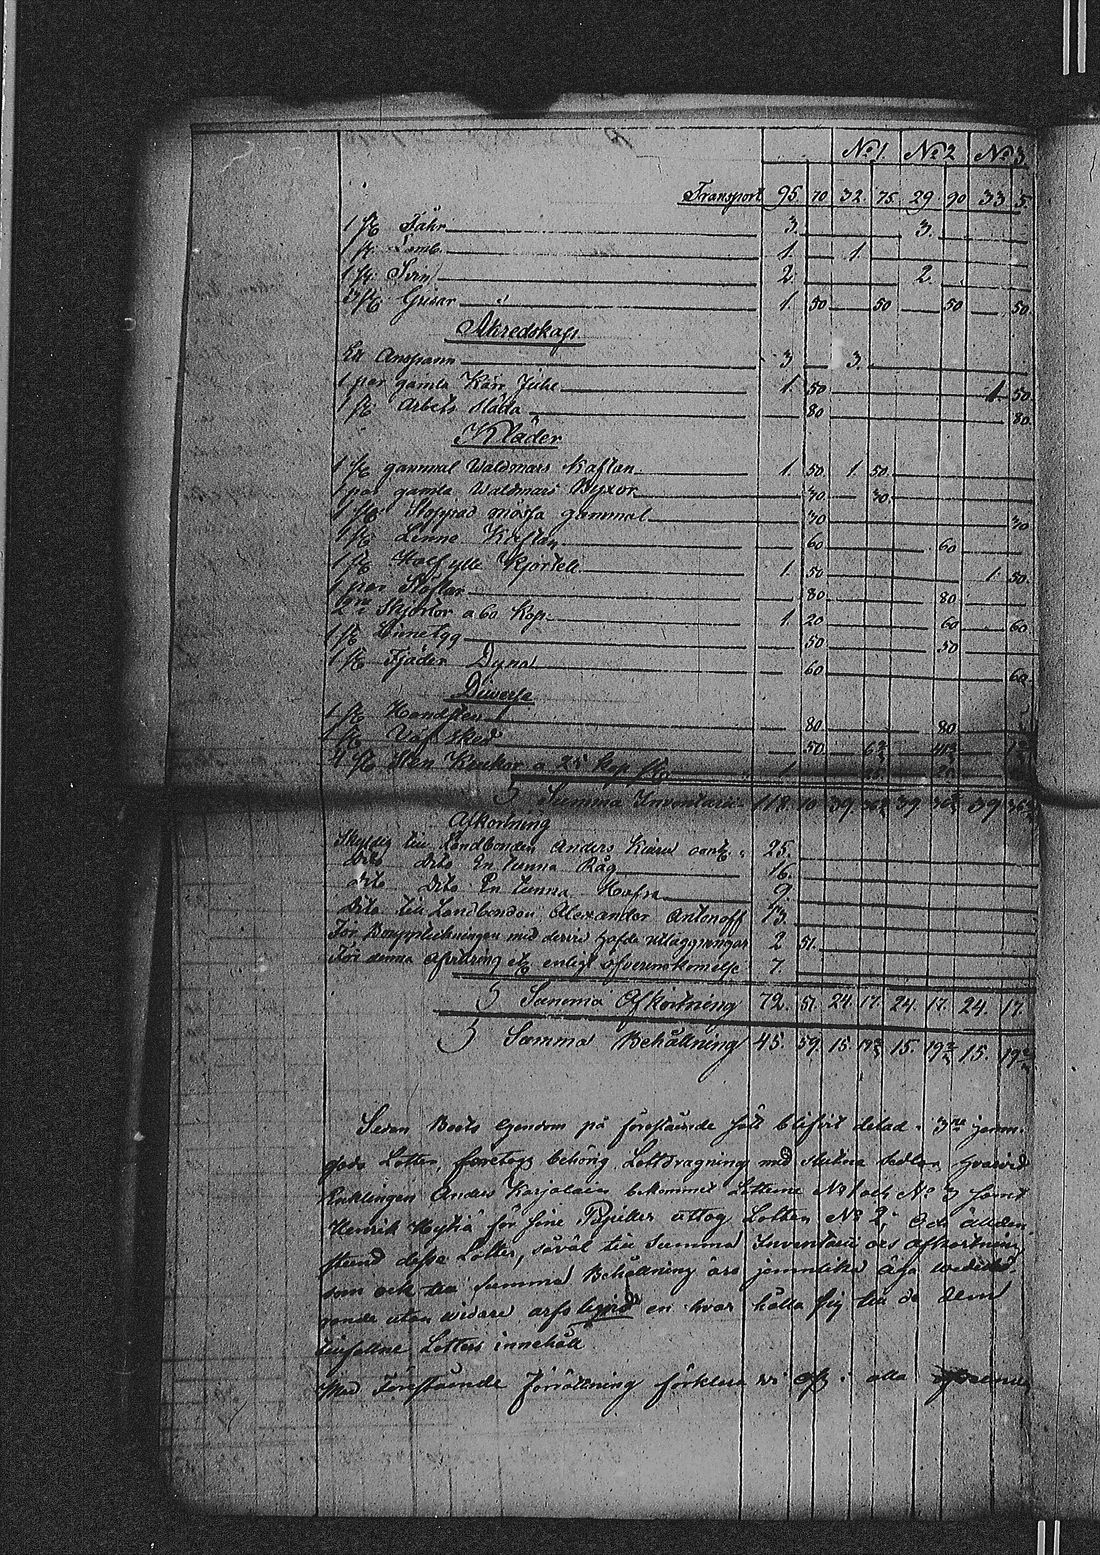 No 1. No 2 No 3
Transport 95. 70 32. 75. 29 90 33 5.
1 st Fåhr 3. 3.
1 st Lamb 1. 1.
1 st Svin 2. 2.
3 st Grisar 1. 50 50 50 50
Åkredskap.
Ett Anspann 3 3.
1 par gamla Kärr Juhl 1. 50 1 50
1 st Arbets släda 80 80
Kläder
1 st gammal Waldmars Kaftan 1. 50 1 50
1 par gamla Waldmars Byxor 30 30
1 st Stoppad mössa gammal 30 30
1 st Linne Kaftan 60 60
1 st Half ylle Kjortell 1. 50 1. 50
1 par Stöflar 80 80
2ne Skjortor a 60 Kop. 1. 20 60 60
1 st 50 50
1 st Fjäder Dyna 60 60
Diverse
1 st Handsten 80 80
1 st Väf sked 50
4 st Sten Krukor a 25 kop st 1
Summa Inventarii 118. 10 39. 39. 39
Afkortning
Skyldig till Landbonden Anders 25.
Dito dito En tunna Råg 16.
Dito dito En tunna Hafra 9.
Dito till Landbonden Alexander Antonoff 13.
För Bouppteckningen med dervid hafde utläggningar 2 51.
För denna afvittring etc enligt öfverenskommelse 7.
Summa Afkortning 72. 51. 24. 17. 24. 17. 24. 17.
Summa Behållning 45. 59. 15. 19⅔ 15. 19⅔ 15. 19⅔
Sedan Boets Egendom på förestående sätt blifvit delad i 3ne jemn-
goda Lotter, företogs behörig Lottdragning med slutna sedlar hvarvid
Enklingen Anders Karjalain bekommit Lotterne No 1 och No 3 samt
Henrik för sine Pupiller uttog Lotten No 2, och
stund desse Lotter, såväl till Summa Inventarii ors afkortning
som ock till Summa Behållning äro jemnlika
gande utan vidare en hvar hålla sig till de
tillfallne Lotters innehåll
Med Förestående Förrättning förklara vi oss i alla